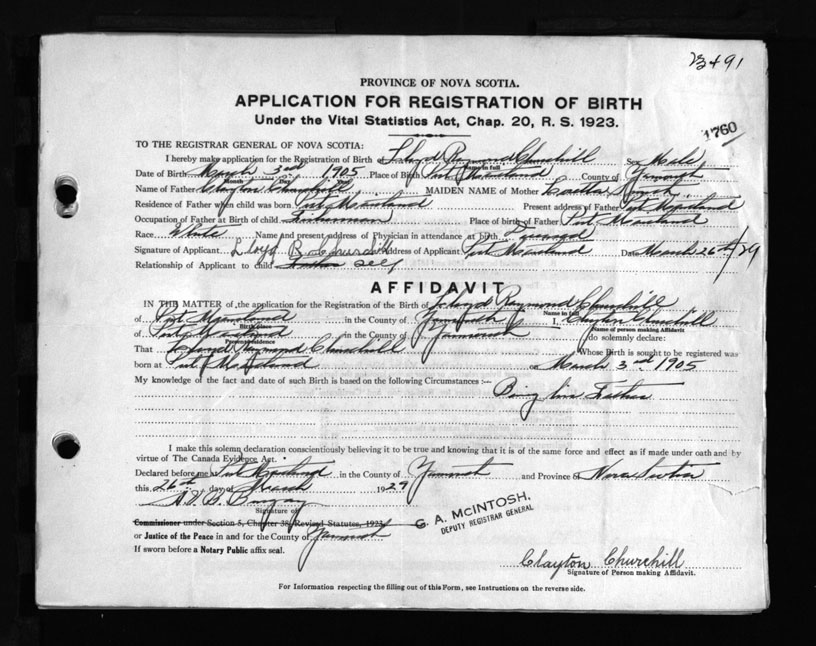 B491
PROVINCE OF NOVA SCOTIA.
APPLICATION FOR REGISTRATION OF BIRTH
Under the Vital Statistics Act, Chap. 20, R. S. 1923.
1760
TO THE REGISTRAR GENERAL OF NOVA SCOTIA:
I hereby make application for the Registration of Birth of Lloyd Raymond Churchill Sex Male
Name in full
Date of Birth March 3rd 1905 Place of Birth Port Maitland County of Yarmouth
Name of Father Clayton Churchill MAIDEN NAME of Mother
Residence of Father when child was born Port Maitland Present address of Father Port Maitland
Occupation of Father at Birth of child Fisherman Place of birth of Father Port Maitland
Race White Name and present address of Physician in attendance at birth
Signature of Applicant Lloyd R. Churchill Address of Applicant Port Maitland Date March 26th/29
Relationship of Applicant to child Father self
AFFIDAVIT
IN THE MATTER of the application for the Registration of the Birth of Lloyd Raymond Churchill
Name in full
of Port Maitland in the County of Yarmouth I, Clayton Churchill
Birth place Name of person making Affidavit
of Port Maitland in the County of Yarmouth do solemnly declare:
Present residence
That Lloyd Raymond Churchill Whose Birth is sought to be registered was
born at Port Maitland on March 3rd 1905
My knowledge of the fact and date of such Birth is based on the following Circumstances :—
Being his Father
I make this solemn declaration conscientiously believing it to be true and knowing that it is of the same force and effect as if made under oath and by
virtue of The Canada Evidence Act.
Declared before me at Port Maitland in the County of Yarmouth and Province of Nova Scotia
this 26th day of March 1929
Signature of
Commissioner under Section 5, Chapter 38, Revised Statutes, 1923
or Justice of the Peace in and for the County of Yarmouth
If sworn before a Notary Public affix seal.
G. A. McINTOSH.
DEPUTY REGISTRAR GENERAL
Clayton Churchill
Signature of Person making Affidavit.
For Information respecting the filling out of this Form, see Instructions on the reverse side.